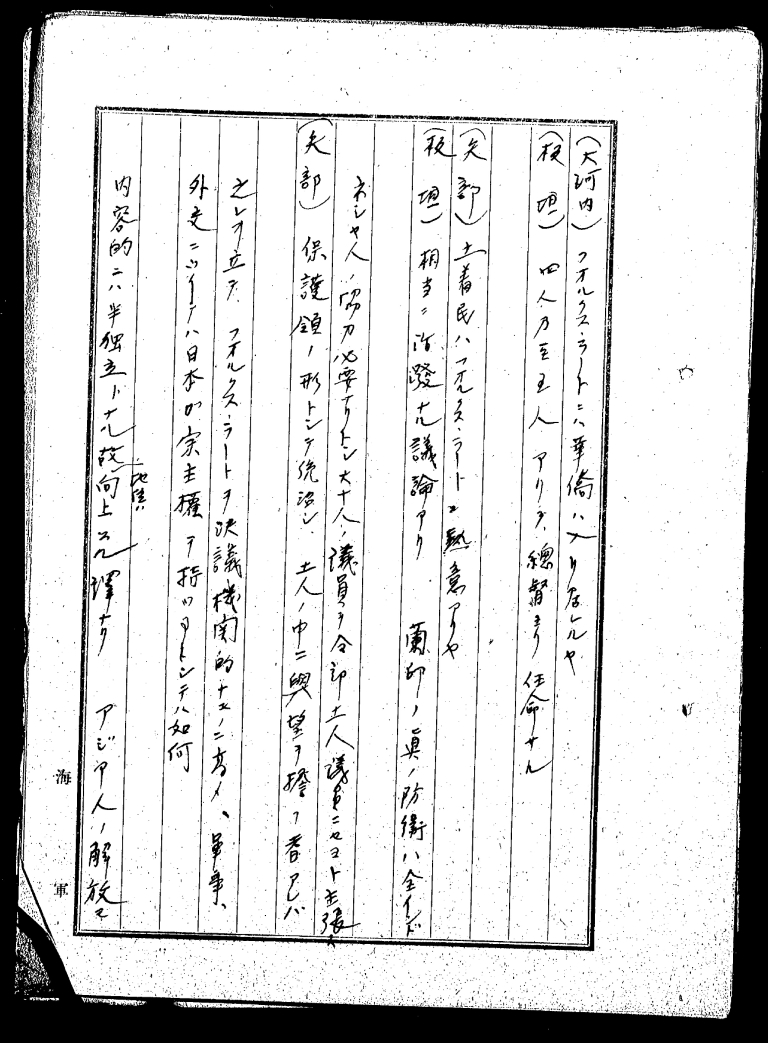 (大河内) フオルクス・ラートニハ華僑ハ入リ居レルヤ
(板垣) 四人乃至五人アリテ、總督ヨリ任命サル
(矢部) 土着民ハフオルクス・ラートニ熱意アリヤ
(板垣) 相当ニ活潑ナル議論アリ 蘭印ノ眞ノ防衛ハ全インド
ネシヤ人ノ協力必要ナリトシ六十人ノ議員ヲ全部土人議員ニセヨト主張ス
(矢部) 保護領ノ形トシテ統治シ、土人ノ中ニ輿望ヲ擔フ者アレバ
之レヲ立テ、フオルクス・ラートヲ決議機関的ナモノニ高メ、軍事、
外交ニツイテハ日本ガ宗主權ヲ持ツコトトシテハ如何
内容的ニハ半独立トナル故地位ハ向上スル譯ナリ アジア人ノ解放マ
海軍